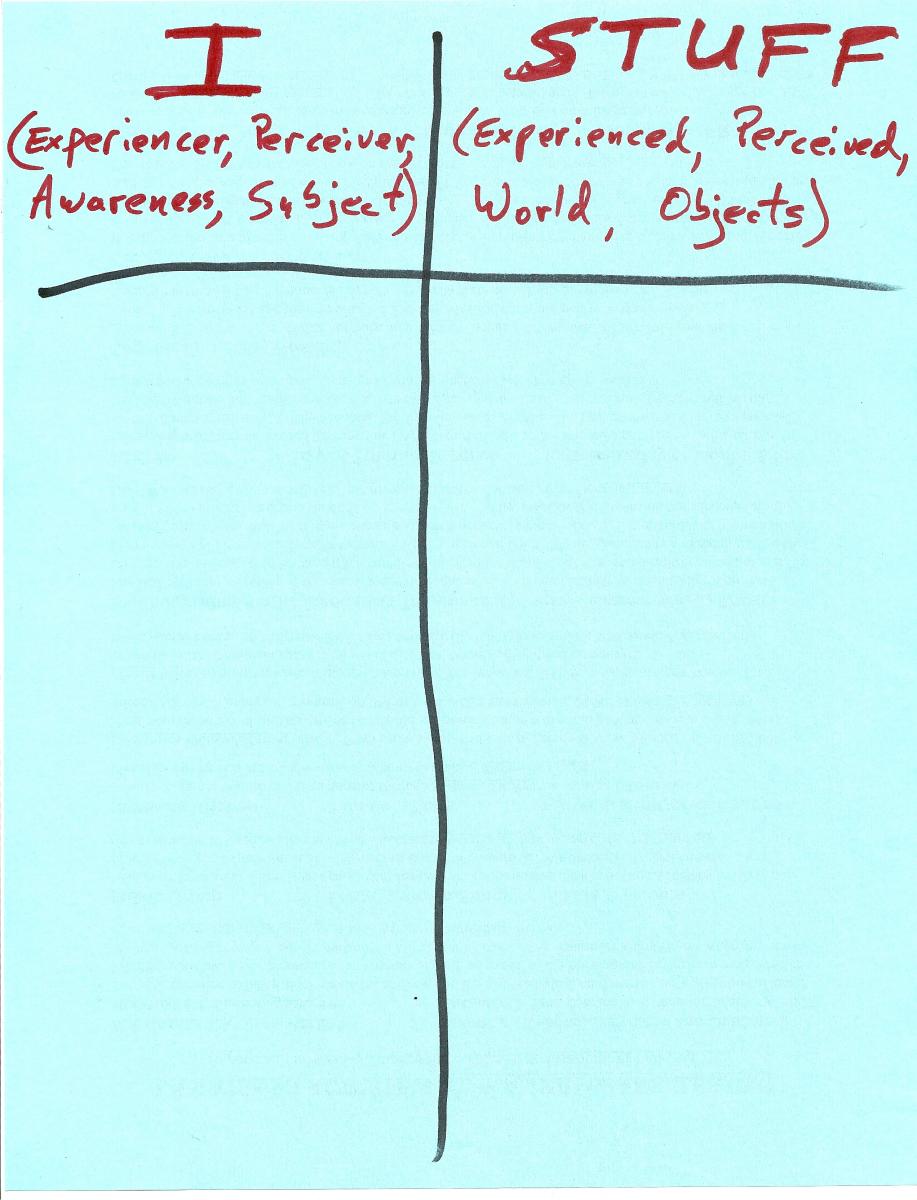 I
(Experiencer, Perceiver,
Awareness, Subject)
STUFF
(Experienced, Perceived,
World, Objects)